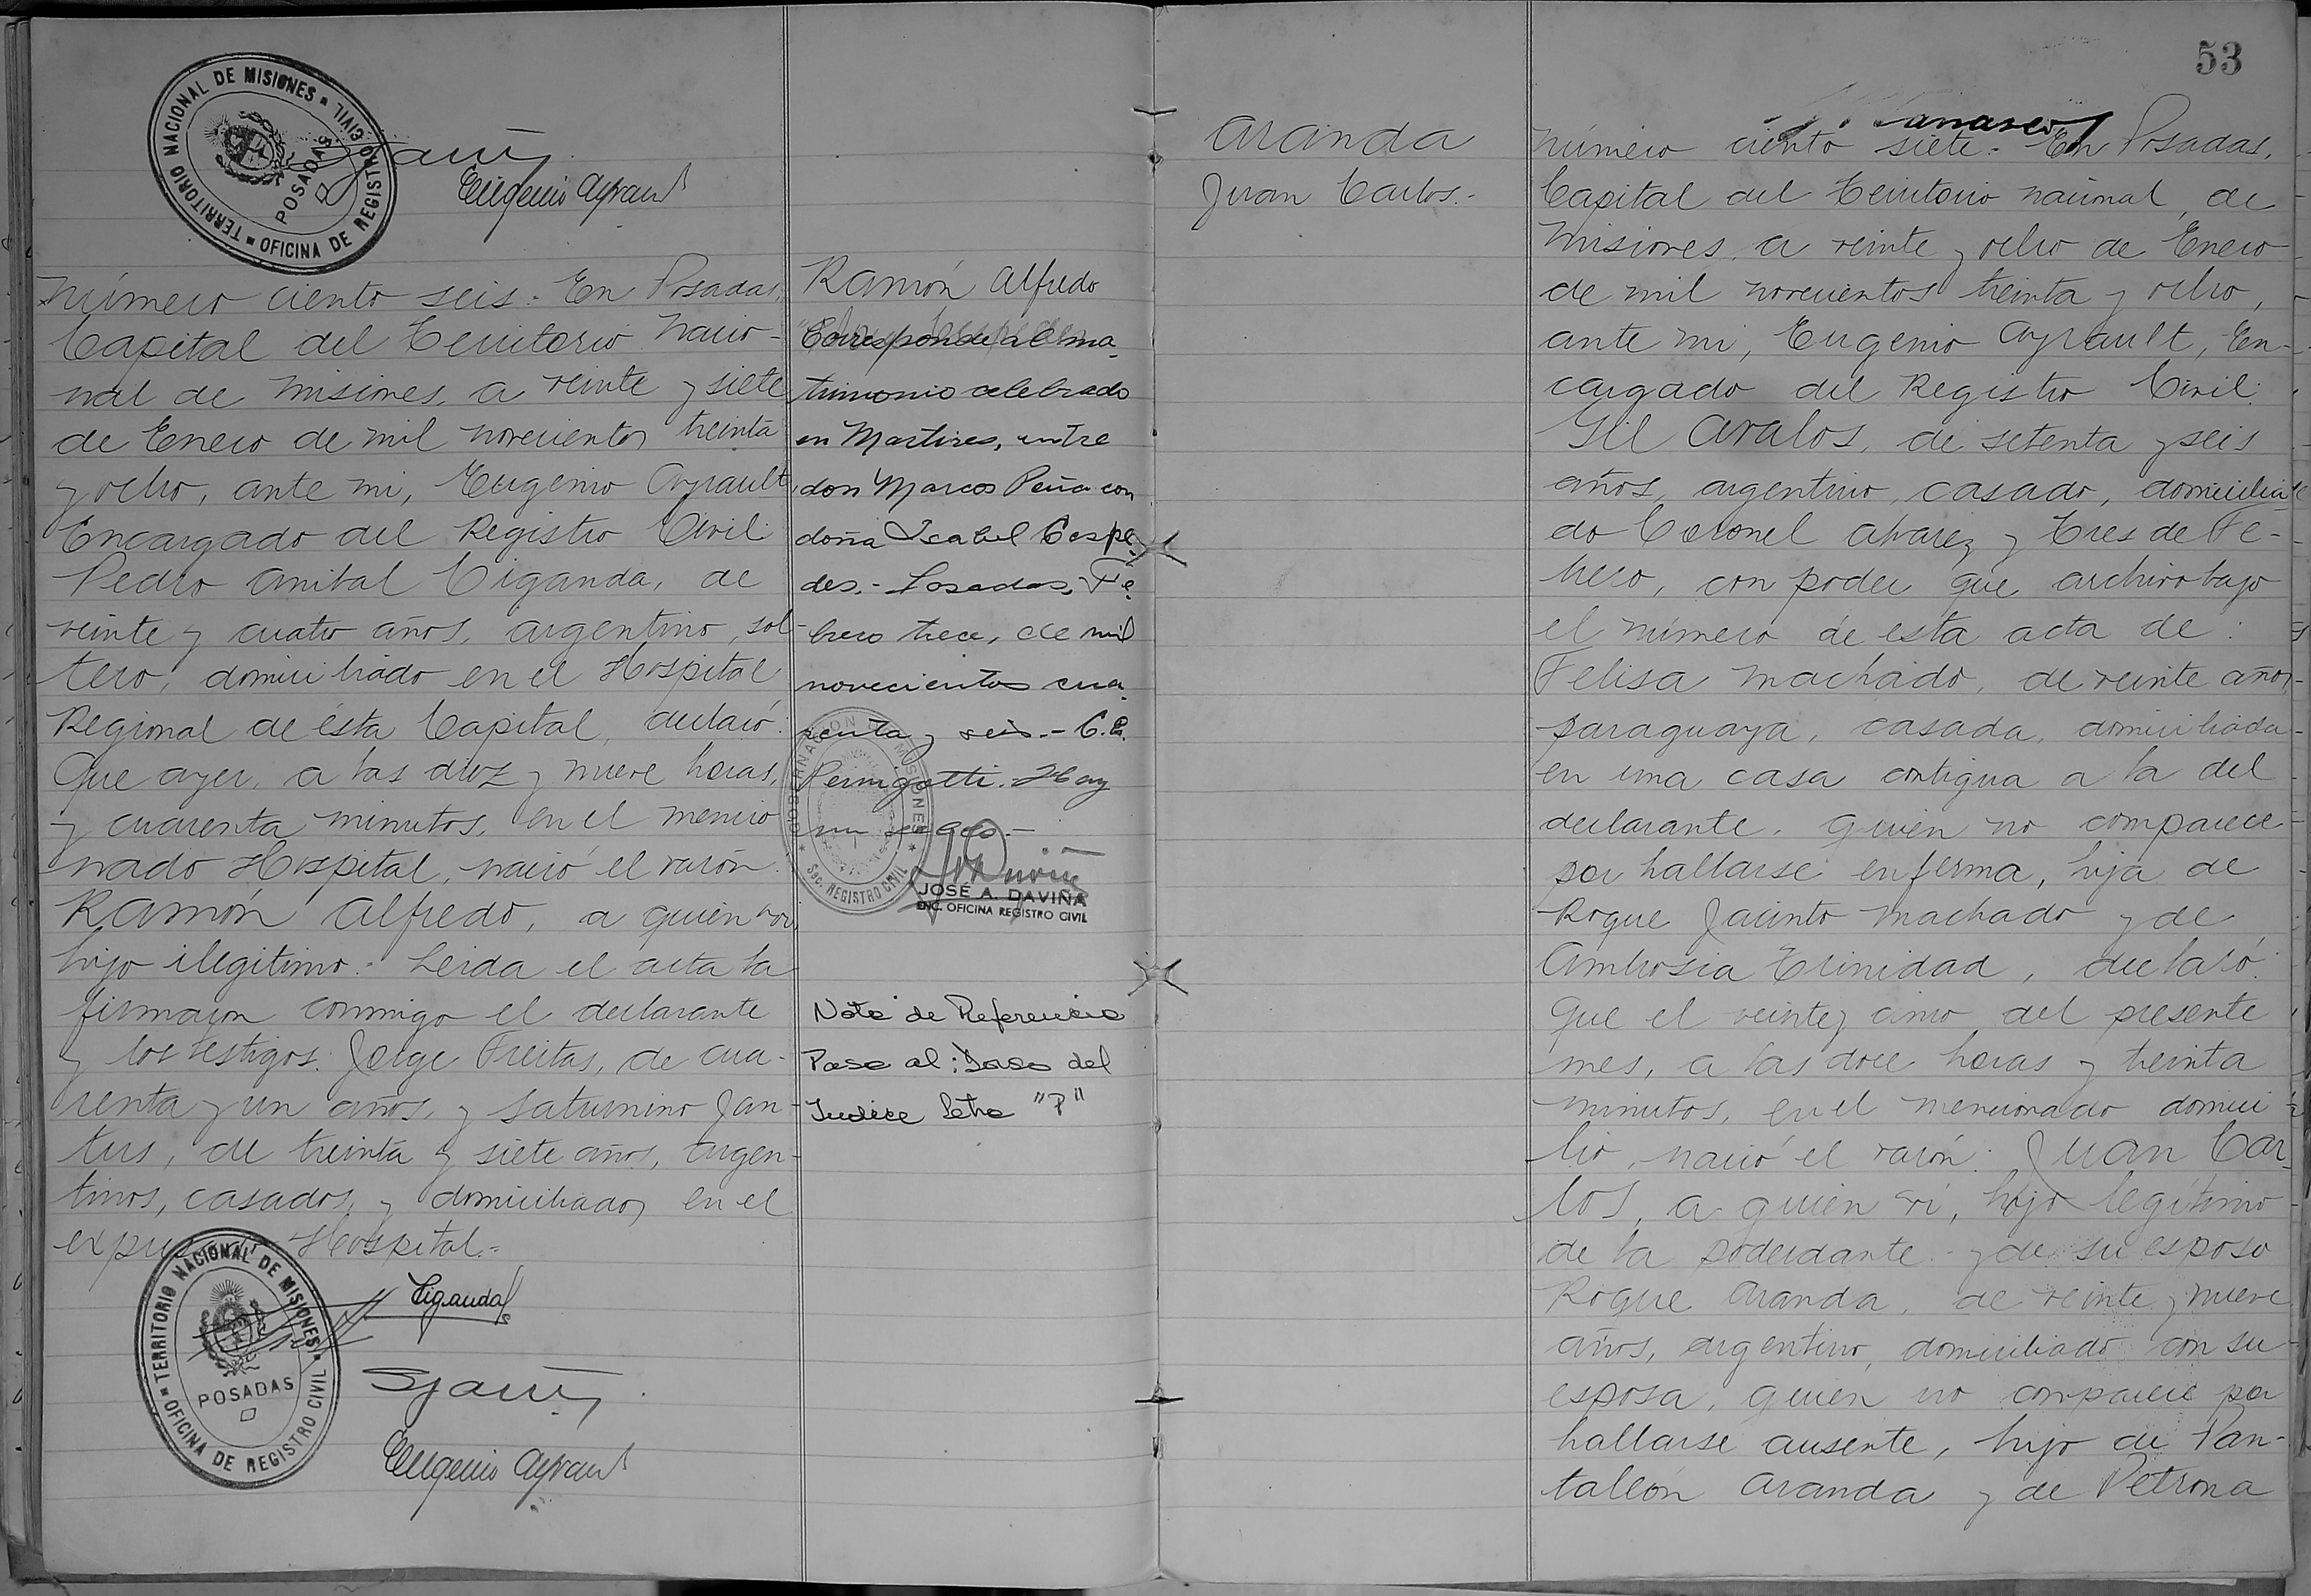 TERRITORIO NACIONAL DE MISIONES
OFICINA DE REGISTRO CIVIL
POSADAS
Eugenio Ayrault
Número ciento seis.- En Posadas,
Capital del Territorio Nacio-
nal de Misiones, a veinte y siete
de Enero de mil novecientos treinta
y ocho, ante mi, Eugenio Ayrault,
Encargado del Registro Civil:
Pedro Anibal Ciganda, de
veinte y cuatro años, argentino, sol-
tero, domiciliado en el Hospital
Regional de ésta Capital, declaró:
Que ayer, a las diez y nueve horas,
y cuarenta minutos, en el mencio
nado Hospital, nació el varón
Ramón Alfredo, a quien vi,
hijo ilegítimo.- Leída el acta la
firmaron conmigo el declarante
y los testigos: Jorge Freitas, de cua-
renta y un años, y Saturnino Jan-
tus, de treinta y siete años, argen-
tinos, casados, y domiciliados en el
Hospital.-
Ciganda
TERRITORIO NACIONAL DE MISIONES
OFICINA DE REGISTRO CIVIL
POSADAS
Eugenio Ayrault
Ramón Alfredo
Corresponde al ma
trimonio celebrado
en Martires, entre
don Marcos Peña con
doña Isabel Cespe
des.- Posadas, Fe
brero trece, de mil
novecientos cua
renta y seis.- C.E.
Perigotti. Hay
un sello.-
GOBERNACION DE MISIONES
Sec. REGISTRO CIVIL
JOSÉ A. DAVIÑA
ENC. OFICINA REGISTRO CIVIL
Nota de Referencia
Pase al: Dasa del
Indice letra "P"
Aranda
Juan Carlos.-
53
Número ciento siete.- En Posadas,
Capital del Territorio Nacional, de
Misiones, a veinte y ocho de Enero
de mil novecientos treinta y ocho,
ante mi, Eugenio Ayrault, En-
cargado del Registro Civil:
Gil Avalos, de setenta y seis
años, argentino, casado, domicilia
do Coronel Alvarez y Tres de Fe-
brero, con poder que archivo bajo
el número de esta acta de:
Felisa Machado, de veinte años,
paraguaya, casada, domiciliada
en una casa contigua a la del
declarante, quien no comparece
por hallarse enferma, hija de
Roque Jacinto Machado y de
Ambrosia Trinidad, declaró:
Que el veinte y cinco del presente
mes, a las doce horas y treinta
minutos, en el mencionado domici
lio, nació el varón: Juan Car
los, a quien vi, hijo legítimo
de la poderdante y de su esposo
Roque Aranda, de veinte y nueve
años, argentino, domiciliado con su
esposa, quien no comparece por
hallarse ausente, hijo de Pan-
taleón Aranda y de Petrona